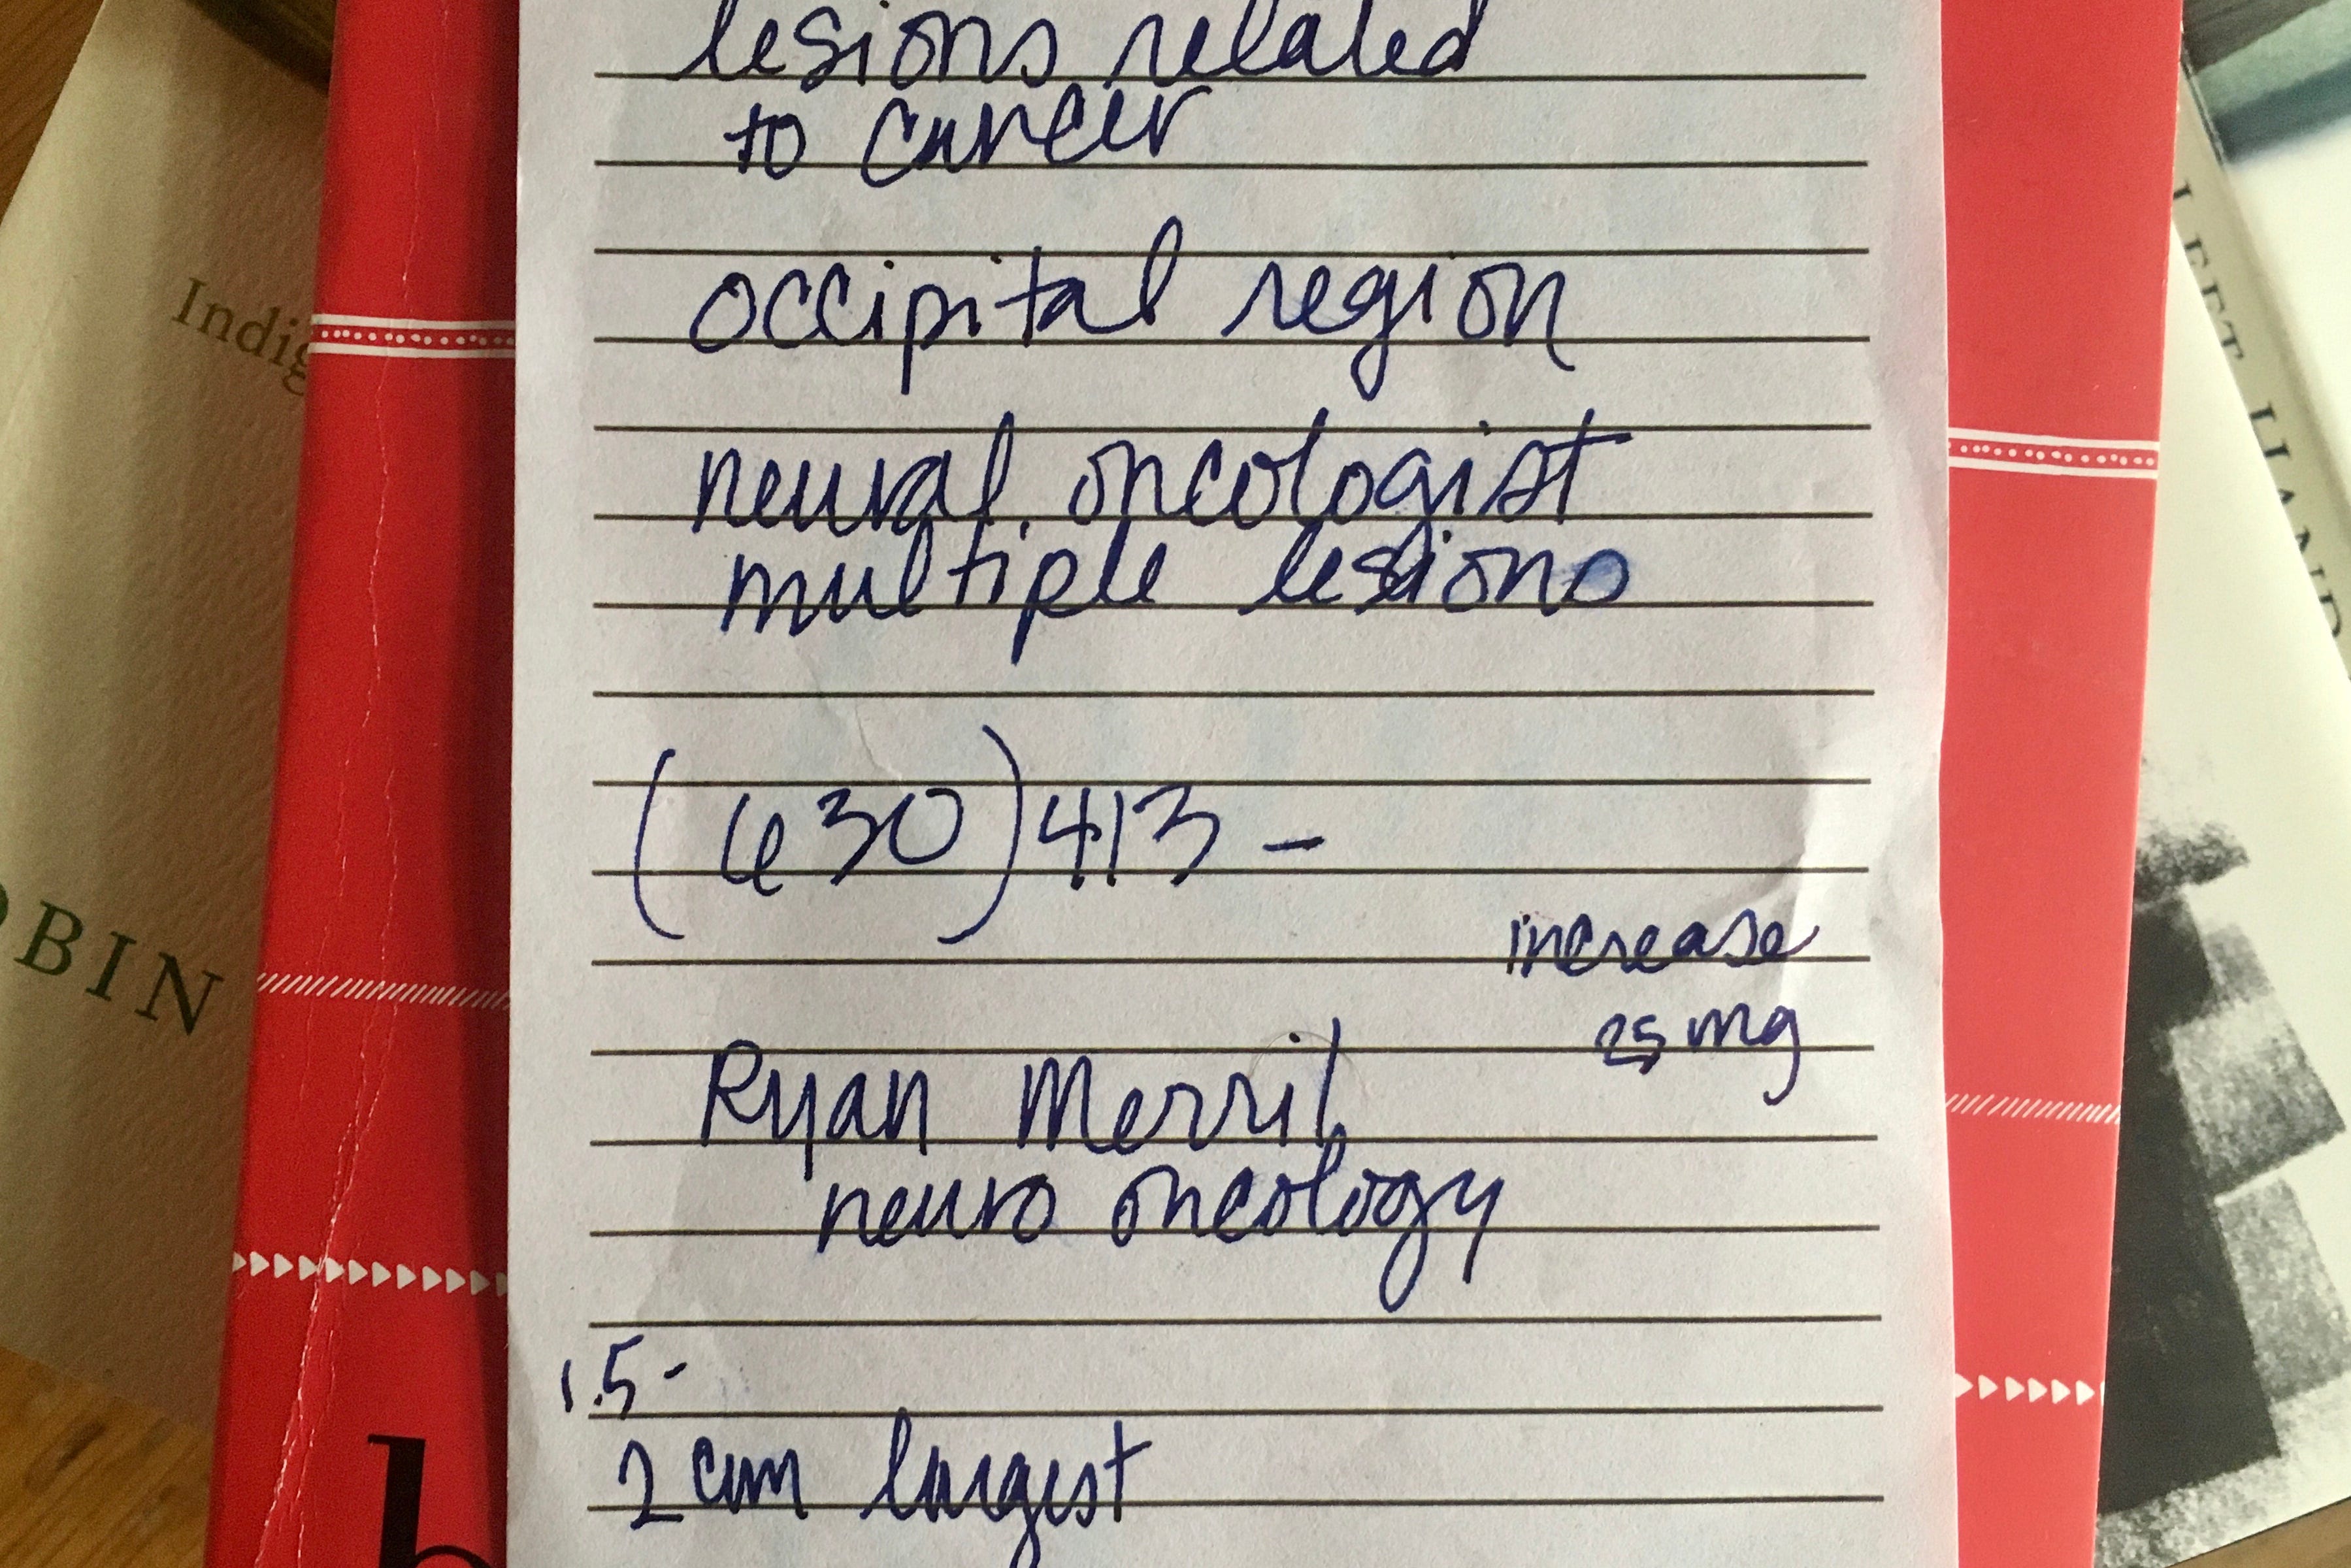 lesions related
to cancer
occipital region
neural oncologist
multiple lesions
(630) 413 -
increase
25 mg
Ryan Merril
neuro oncology
1.5 -
2 cm largest
Indig
OBIN
b